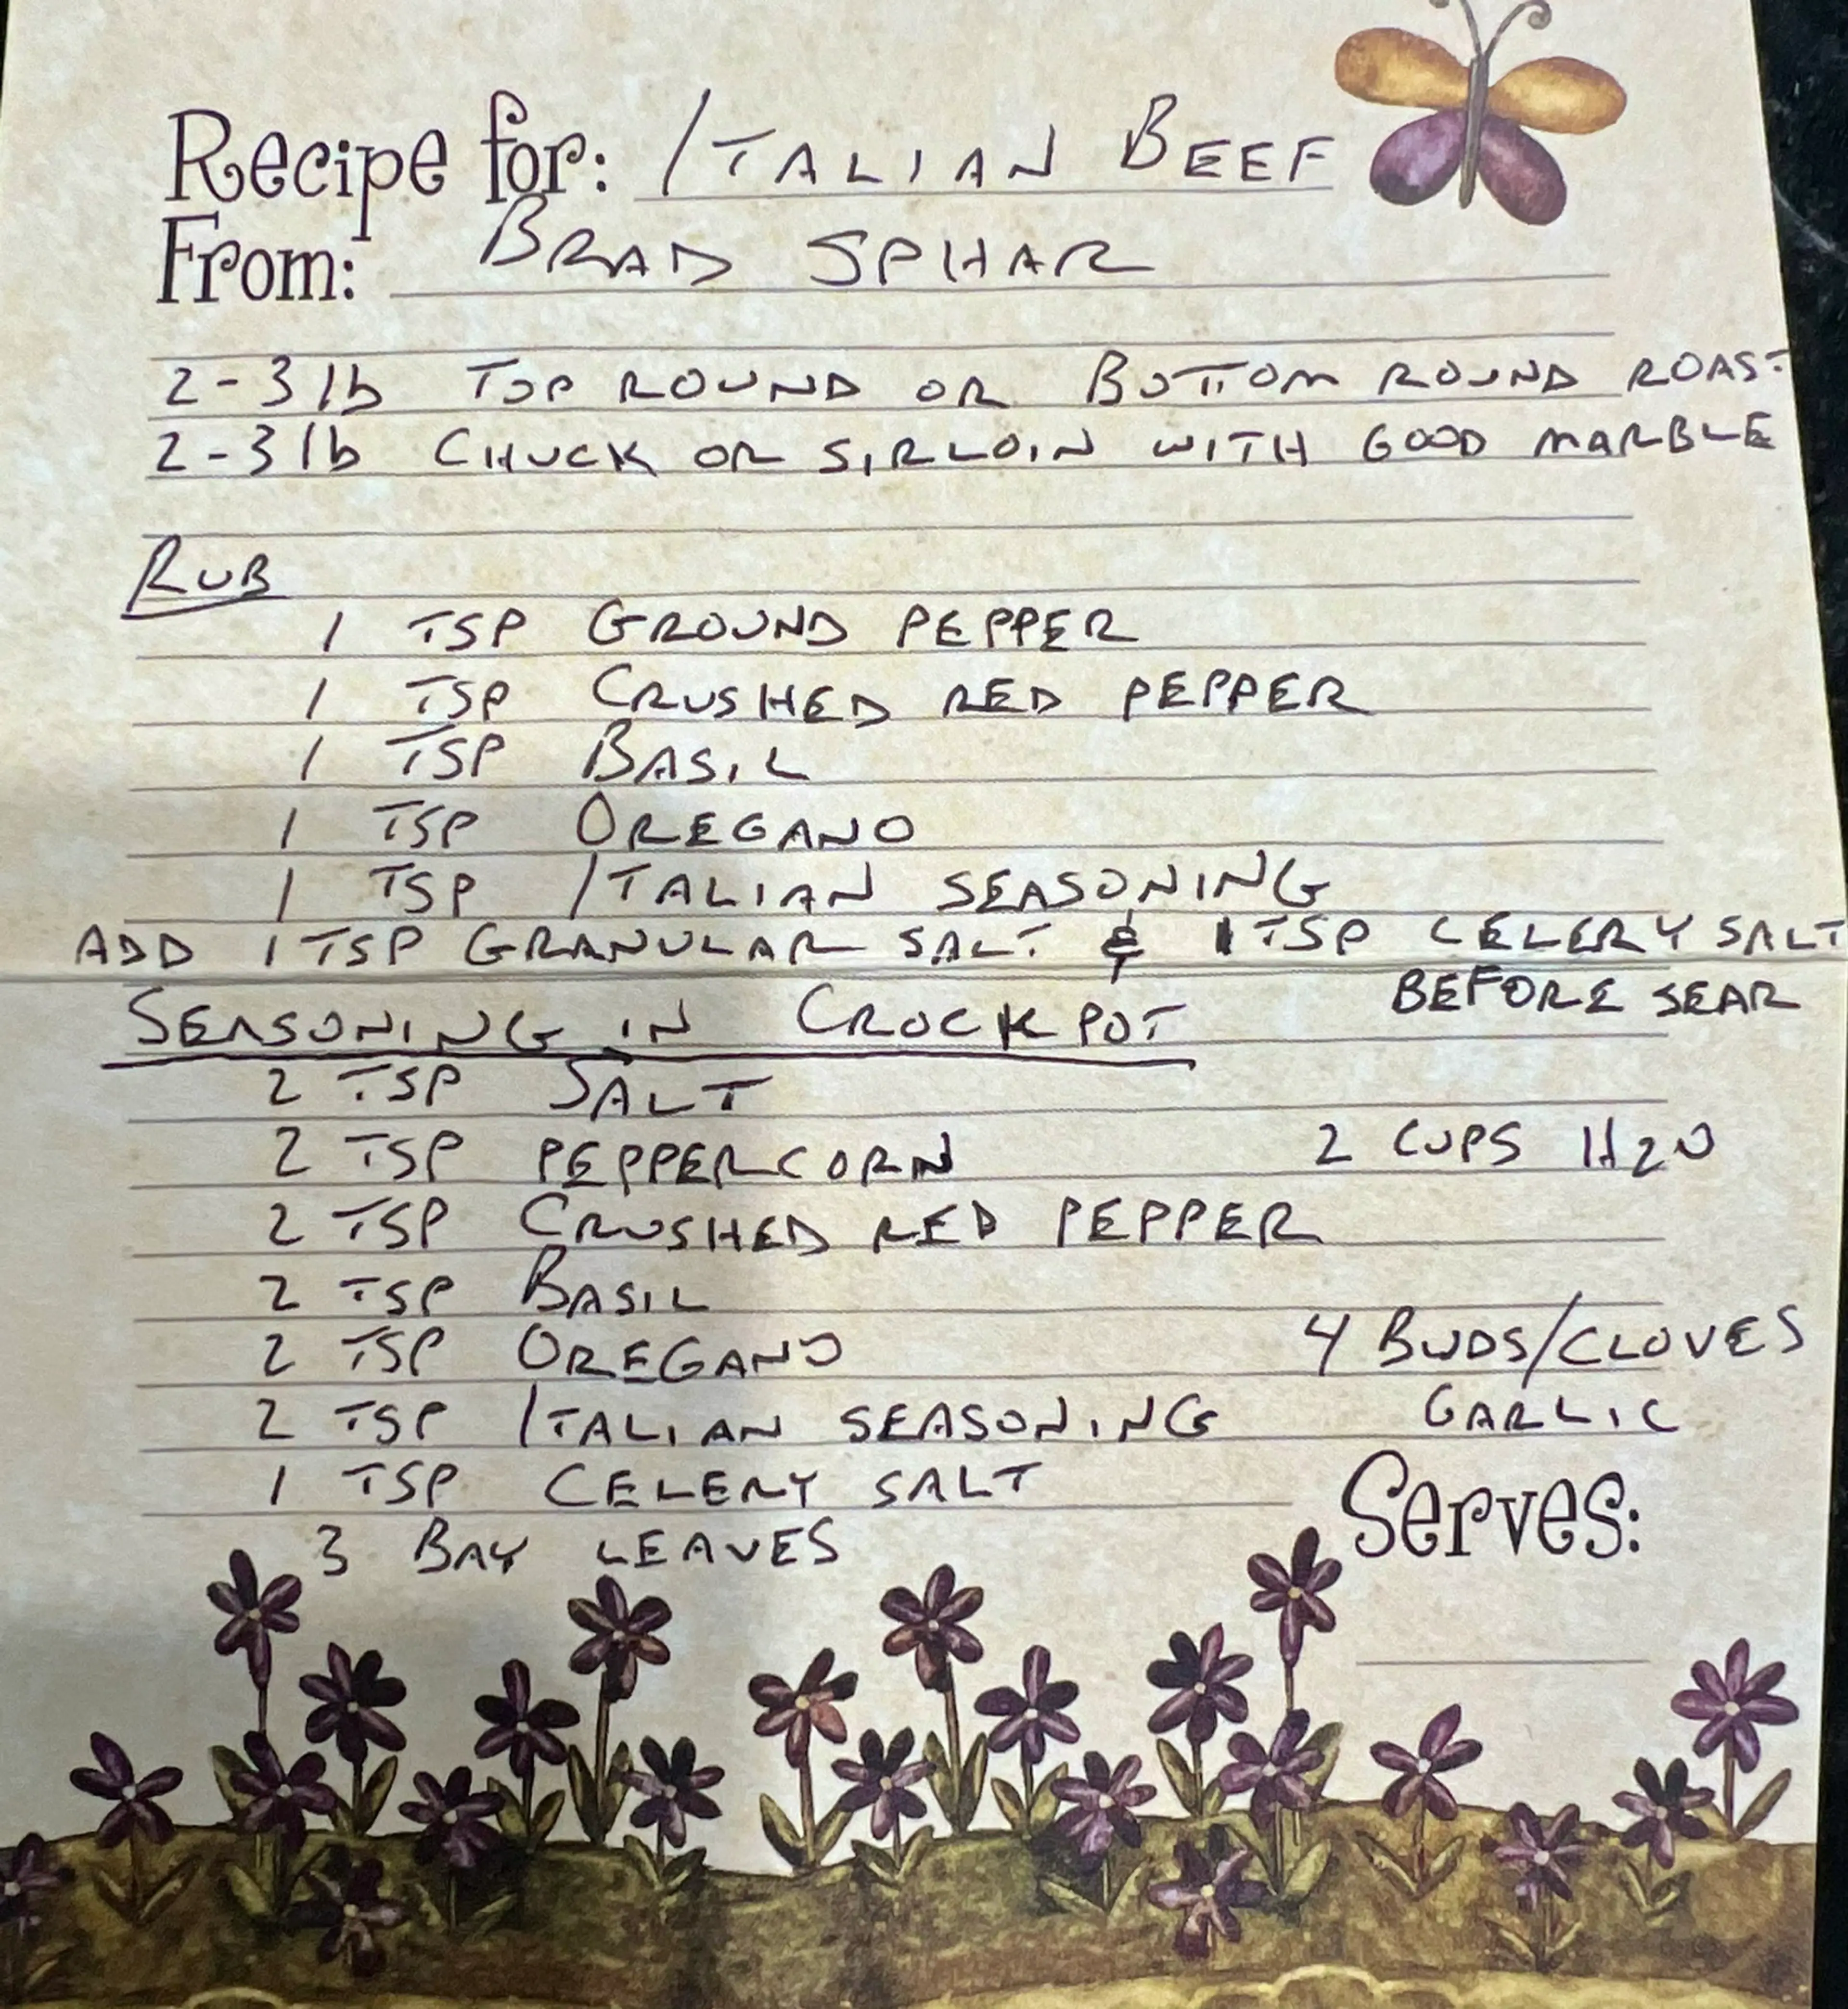 Recipe for: ITALIAN BEEF
From: BRAD SPHAR
2-3 lb TOP ROUND OR BOTTOM ROUND ROAST
2-3 lb CHUCK OR SIRLOIN WITH GOOD MARBLE
RUB
1 TSP GROUND PEPPER
1 TSP CRUSHED RED PEPPER
1 TSP BASIL
1 TSP OREGANO
1 TSP ITALIAN SEASONING
ADD 1 TSP GRANULAR SALT & 1 TSP CELERY SALT
BEFORE SEAR
SEASONING IN CROCKPOT
2 TSP SALT
2 TSP PEPPERCORN 2 CUPS H2O
2 TSP CRUSHED RED PEPPER
2 TSP BASIL
2 TSP OREGANO 4 BUDS/CLOVES
2 TSP ITALIAN SEASONING GARLIC
1 TSP CELERY SALT
Serves:
3 BAY LEAVES